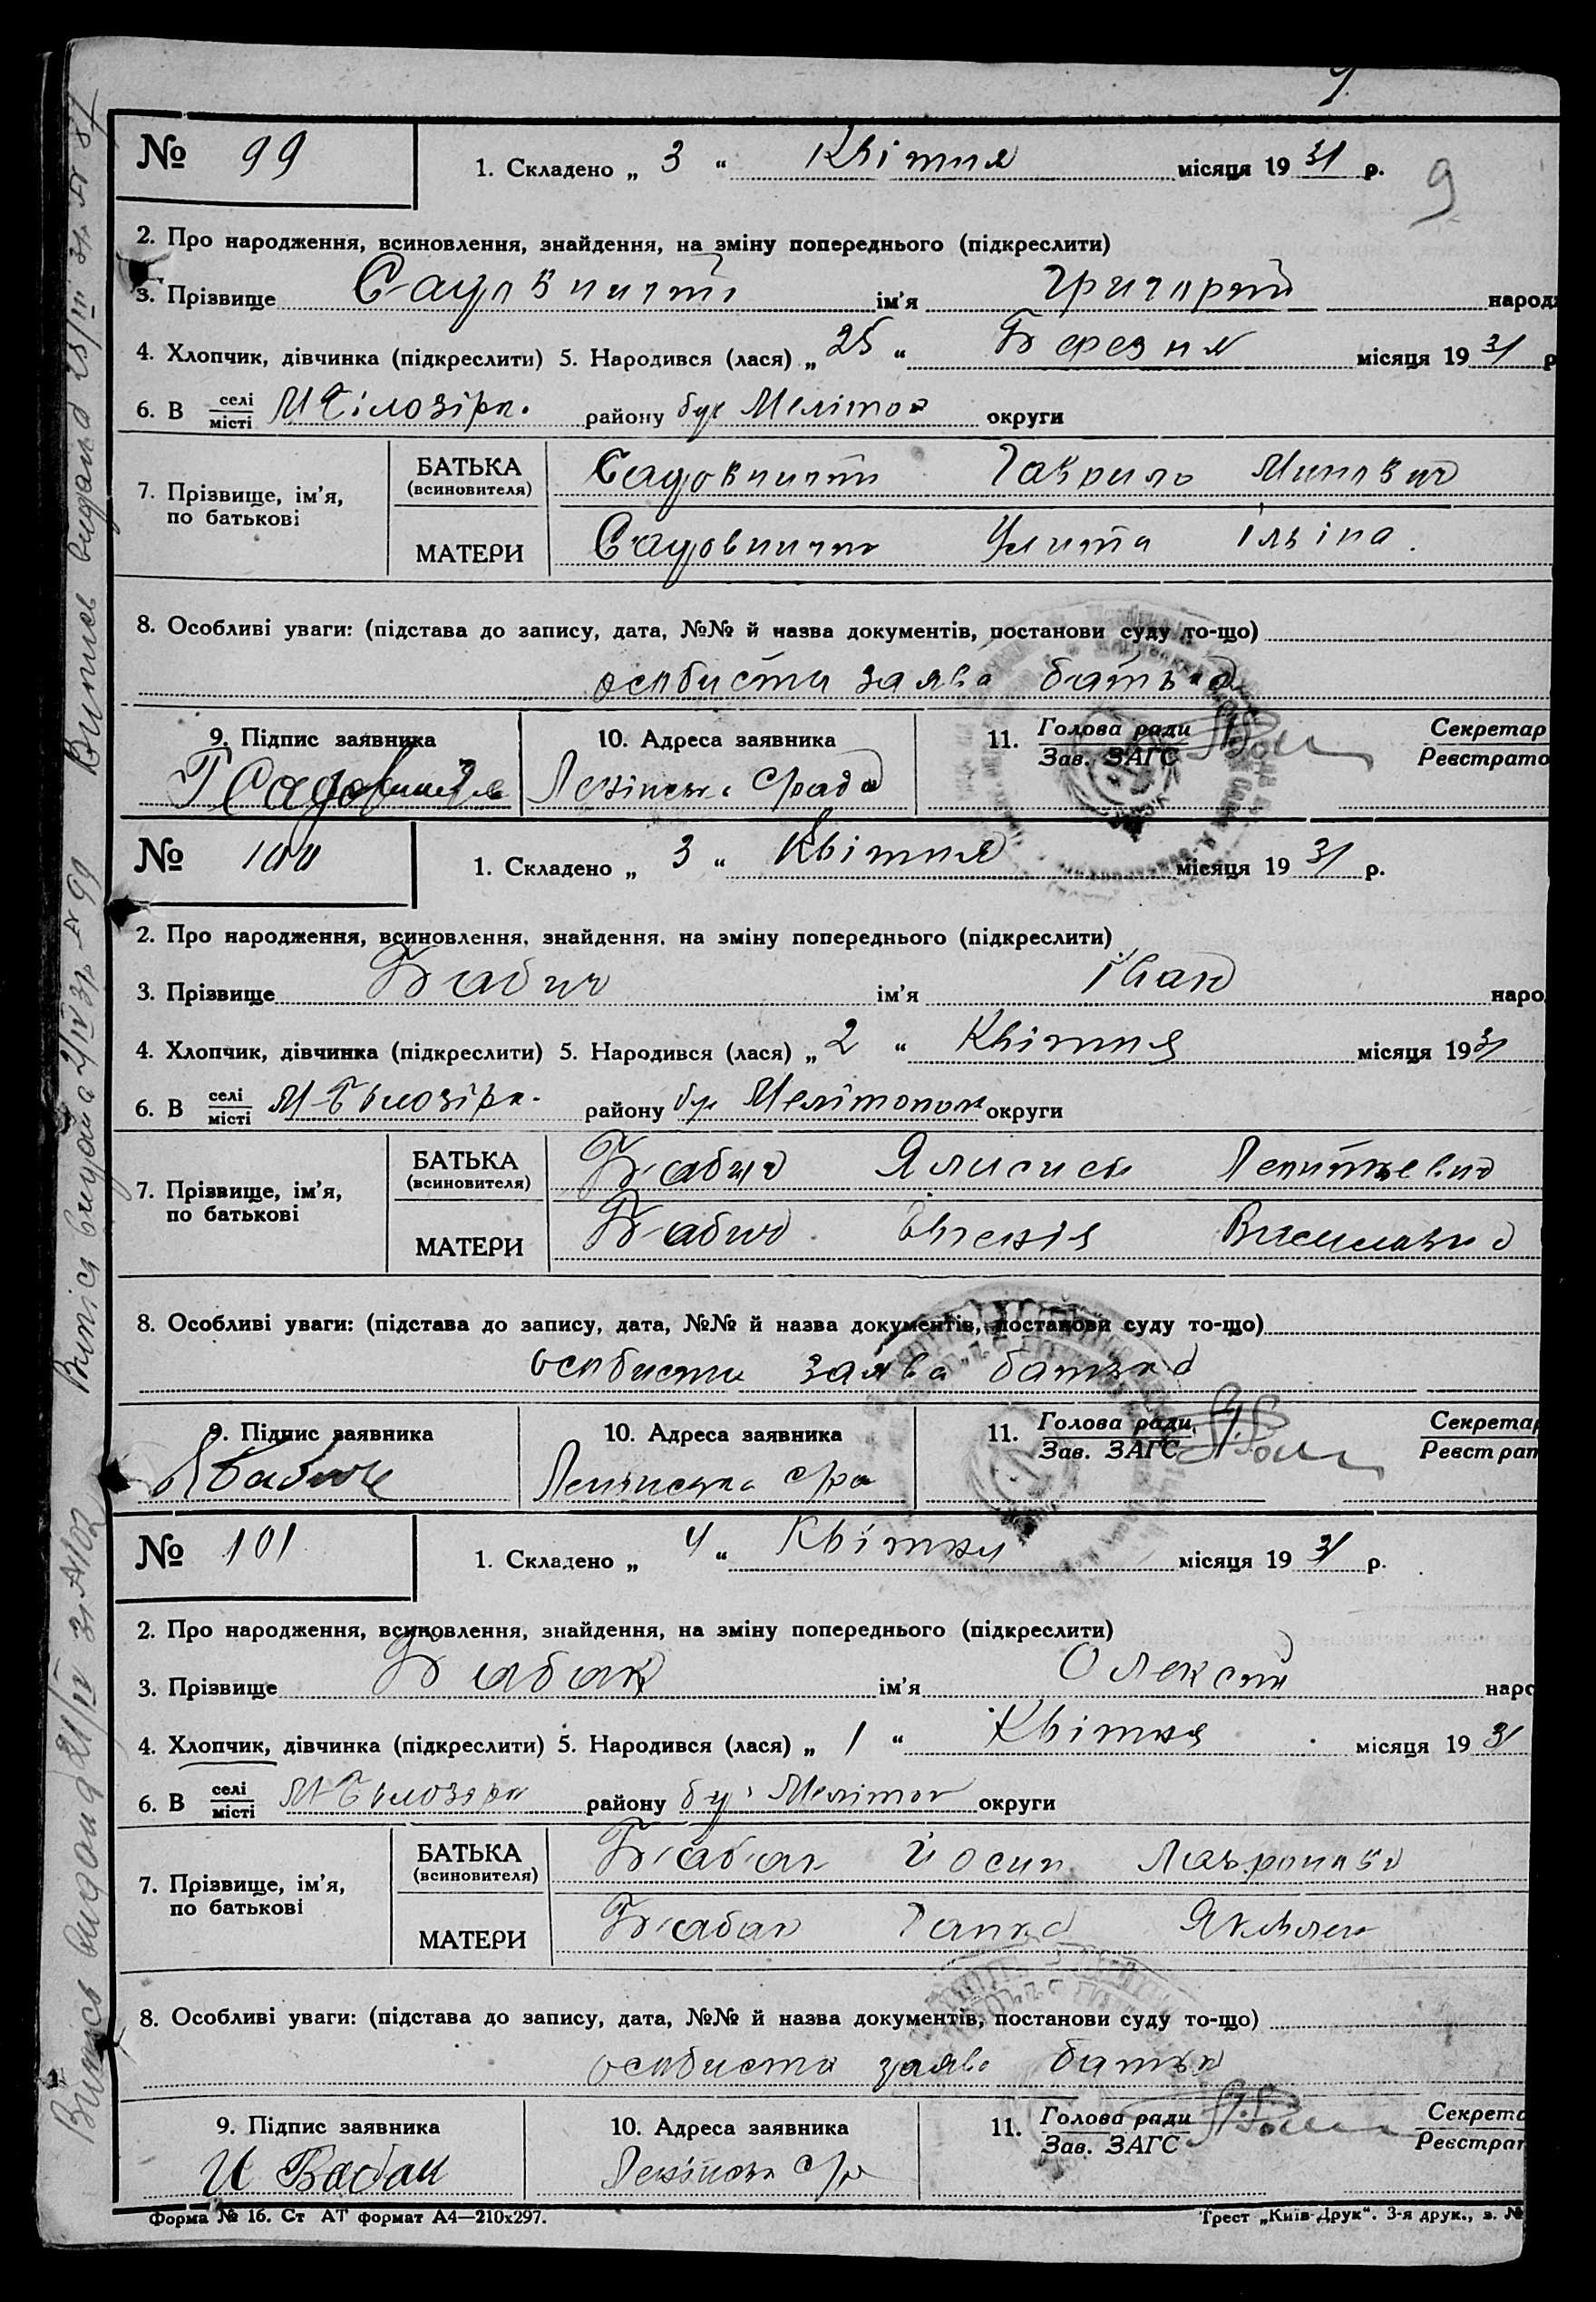 9
№ 99 1. Складено „ 3 “ Квітня місяця 19 31 р.
9
2. Про народження, всиновлення, знайдення, на зміну попереднього (підкреслити)
3. Прізвище Садовничий ім’я Григорій народ
4. Хлопчик, дівчинка (підкреслити) 5. Народився (лася) „ 25 “ Березня місяця 19 31 р
6. В селі місті М Білозірк. району бул Мелітоп округи
7. Прізвище, ім’я, по батькові
БАТЬКА (всиновителя) Садовничий Гаврило
МАТЕРИ Садовнича Улита Ільіна.
8. Особливі уваги: (підстава до запису, дата, №№ й назва документів, постанови суду то-що)
особиста заява батька
9. Підпис заявника 10. Адреса заявника 11. Голова ради Зав. ЗАГС Секретар Реєстрато
Г Садовничий Ленінська с/рада
№ 100 1. Складено „ 3 “ Квітня місяця 19 31 р.
2. Про народження, всиновлення, знайдення, на зміну попереднього (підкреслити)
3. Прізвище Бабич ім’я Іван наро
4. Хлопчик, дівчинка (підкреслити) 5. Народився (лася) „ 2 “ Квітня місяця 19 31
6. В селі місті М-Білозірк. району бул Мелітопол округи
7. Прізвище, ім’я, по батькові
БАТЬКА (всиновителя) Бабич
МАТЕРИ Бабич Євгенія Василівна
8. Особливі уваги: (підстава до запису, дата, №№ й назва документів, постанови суду то-що)
особиста заява батька
9. Підпис заявника 10. Адреса заявника 11. Голова ради Зав. ЗАГС Секретар Реєстрат
Бабич Ленінська с/ра
№ 101 1. Складено „ 4 “ Квітня місяця 19 31 р.
2. Про народження, всиновлення, знайдення, на зміну попереднього (підкреслити)
3. Прізвище Бабак ім’я Олексій нарс
4. Хлопчик, дівчинка (підкреслити) 5. Народився (лася) „ 1 “ Квітня місяця 19 31
6. В селі місті М-Білозірк району бул Мелітоп округи
7. Прізвище, ім’я, по батькові
БАТЬКА (всиновителя) Бабак Йосип
МАТЕРИ Бабак Ганна Яковлен
8. Особливі уваги: (підстава до запису, дата, №№ й назва документів, постанови суду то-що)
особиста заява батька
9. Підпис заявника 10. Адреса заявника 11. Голова ради Зав. ЗАГС Секрета Реєстрат
И Бабак Ленінська с/р
Форма № 16. Ст АТ формат А4—210х297. Трест „Київ-Друк“. 3-я друк., з. №
Випись видана 21/IV 31 №102 Випись видана 2/IV 31р №99 Випись видана 25/III 31р № 87